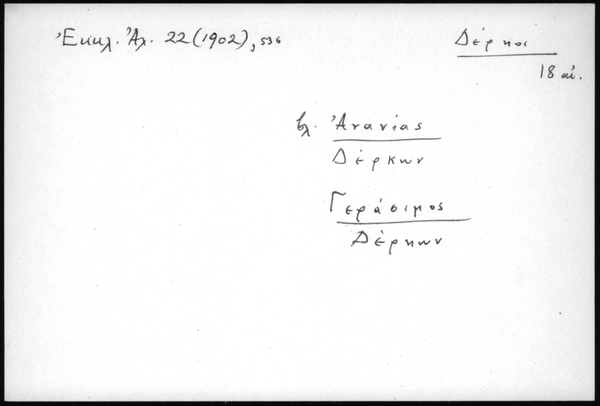 Ἐκκλ. Ἀλ. 22 (1902), 536
Δέρκοι
18 αἰ.
βλ. Ἀνανίας
Δέρκων
Γεράσιμος
Δέρκων